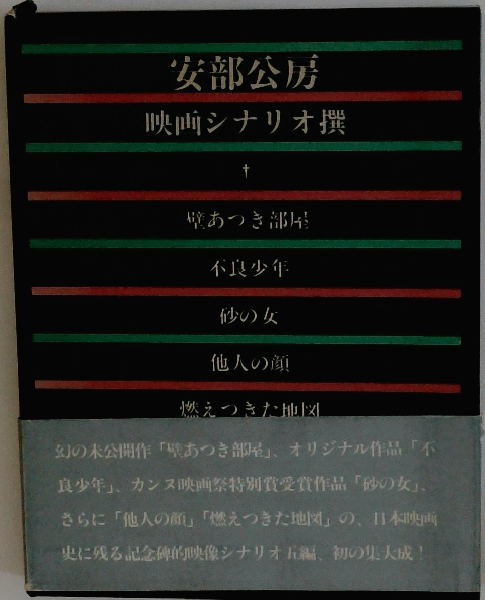 安部公房
映画シナリオ撰
†
壁あつき部屋
不良少年
砂の女
他人の顔
燃えつきた地図
幻の未公開作「壁あつき部屋」、オリジナル作品「不
良少年」、カンヌ映画祭特別賞受賞作品「砂の女」、
さらに「他人の顔」「燃えつきた地図」の、日本映画
史に残る記念碑的映像シナリオ五編、初の集大成!